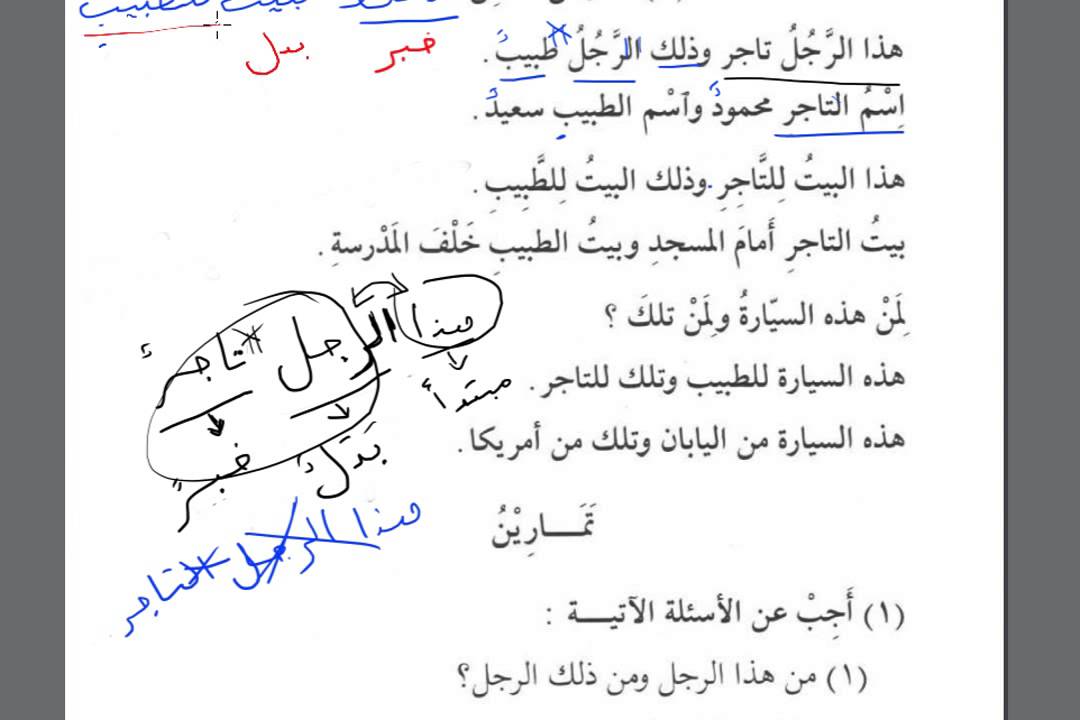 للطبيب
خبر بدل
هذا الرَّجُلُ تاجر وذلك الرَّجُلُ طبيبٌ .
اِسْمُ التاجر محمودٌ وٱسْم الطبيبِ سعيدٌ .
هذا البيتُ لِلتَّاجِرِ وذلك البيتُ لِلطَّبِيبِ .
بيتُ التاجرِ أَمامَ المسجدِ وبيتُ الطبيبِ خَلْفَ المَدْرسةِ .
لِمَنْ هذه السيّارةُ ولِمَنْ تلكَ ؟
هذه السيارة للطبيب وتلك للتاجر .
هذه السيارة من اليابان وتلك من أمريكا .
هذا الرجل تاجر
مبتدأ
بَدَلٌ
خبرٌ
هذا الرجل تاجر
تَمَـــارِيْنُ
(١) أَجِبْ عن الأسئلة الآتيـــة :
(١) من هذا الرجل ومن ذلك الرجل؟